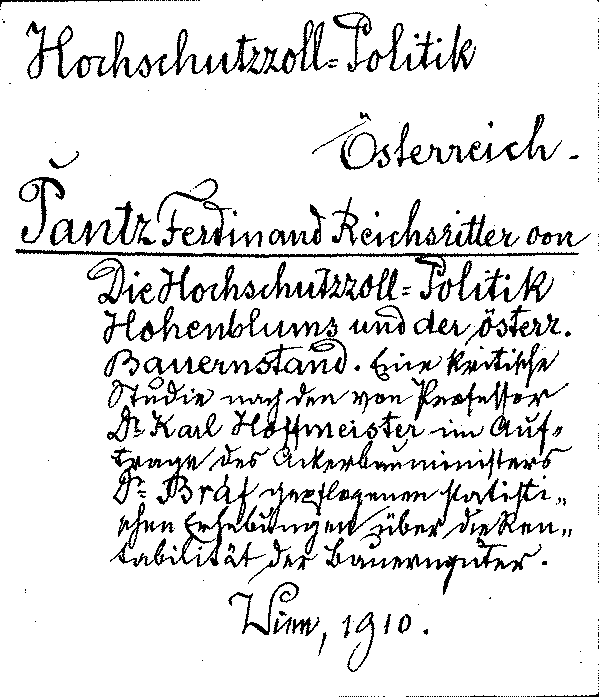 Hochschutzzoll=Politik
Österreich.
Pantz Ferdinand Reichsritter von
Die Hochschutzzoll=Politik
Hohenblums und der österr.
Bauernstand. Eine kritische
Studie nach den von Professor
Dr. Karl Hoffmeister im Auf=
trage des Ackerbauministers
Dr. Bráf gepflogenen statisti=
schen Erhebungen über die Ren=
tabilität der Bauerngüter.
Wien, 1910.